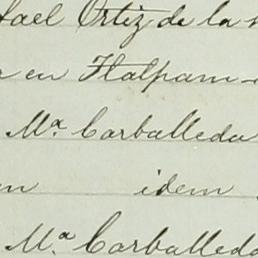 fael Ortiz de la
en Tlalpam
Mª Carballeda
idem
Mª Carballeda